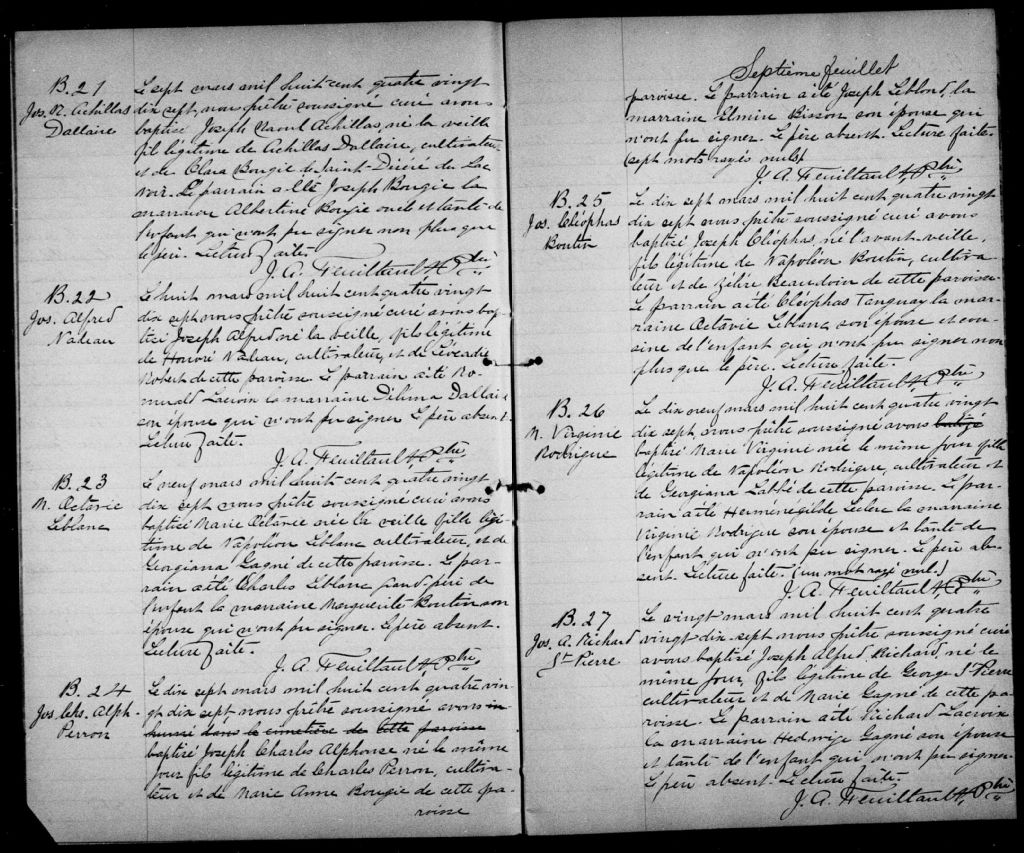 B. 21
Jos. N. Achillas
Dallaire
Le sept mars mil huit cent quatre vingt
dix sept, nous prêtre soussigné curé avons
baptisé Joseph Naoul Achillas, né la veille
fil légitime de Achillas Dallaire, cultivateur
et de Clara Bougie de Saint-Désiré du Lac
noir. Le parrain a été Joseph Bougie la
marraine Albertine Bougie oncle et tante de
l'enfant qui n'ont pu signer non plus que
le père. Lecture faite.
J. A. Feuiltault Ptre
B. 22
Jos. Alfred
Nadeau
Le huit mars mil huit cent quatre vingt
dix sept nous prêtre soussigné curé avons bap-
tisé Joseph Alfred né la veille, fils légitime
de Honoré Nadeau, cultivateur, et de Léocadie
Robert de cette paroisse. Le parrain a été Ro-
muald Lacroix la marraine Délima Dallaire
son épouse qui n'ont pu signer. Le père absent.
Lecture faite.
J. A. Feuiltault Ptre
B. 23
M. Octavie
Leblanc
Le neuf mars mil huit-cent quatre vingt
dix sept nous prêtre soussigné curé avons
baptisé Marie Octavie née la veille fille légi-
time de Napoléon Leblanc cultivateur, et de
Georgiana Gagné de cette paroisse. Le par-
rain a été Charles Leblanc grand-père de
l'enfant la marraine Marguerite Boutin son
épouse qui n'ont pu signer. Le père absent.
Lecture faite.
J. A. Feuiltault Ptre
B. 24
Jos. Chs. Alph.
Perron
Le dix sept mars mil huit cent quatre vin-
gt dix sept, nous prêtre soussigné avons in-
humé dans le cimetière de cette paroisse
baptisé Joseph Charles Alphonse né le même
jour fils légitime de Charles Perron, cultiva-
teur et de Marie Anne Bougie de cette pa-
roisse
Septième feuillet
paroisse. Le parrain a été Joseph Leblond, la
marraine Elmire Bisson son épouse qui
n'ont pu signer. Le père absent. Lecture faite.
(sept mots rayés nuls)
J. A. Feuiltault Ptre
B. 25
Jos. Cléophas
Boutin
Le dix sept mars mil huit cent quatre vingt
dix sept nous prêtre soussigné curé avons
baptisé Joseph Cléophas, né l'avant-veille
fils légitime de Napoléon Boutin, cultiva-
teur et de Zélire Beaudoin de cette paroisse.
Le parrain a été Cléophas Tanguay la mar-
raine Octavie Leblanc son épouse et cou-
sine de l'enfant qui n'ont pu signer non
plus que le père. Lecture faite.
J. A. Feuiltault Ptre
B. 26
M. Virginie
Rodrigue
Le dix neuf mars mil huit cent quatre vingt
dix sept, nous prêtre soussigné avons batizé
baptisé Marie Virginie née le même jour fille
légitime de Napoléon Rodrigue, cultivateur et
de Georgiana Labbé de cette paroisse. Le par-
rain a été Herménégilde Leclerc la marraine
Virginie Rodrigue son épouse et tante de
l'enfant qui n'ont pu signer. Le père ab-
sent. Lecture faite. (un mot rayé nul.)
J. A. Feuiltault Ptre
B. 27
Jos. A. Richard
St Pierre
Le vingt mars mil huit cent quatre
vingt dix-sept nous prêtre soussigné curé
avons baptisé Joseph Alfred Richard, né le
même jour, fils légitime de George St Pierre
cultivateur et de Marie Gagné de cette pa-
roisse. Le parrain a été Richard Lacroix
la marraine Hedwige Gagné son épouse
et tante de l'enfant qui n'ont pu signer.
Le père absent. Lecture faite.
J. A. Feuiltault Ptre